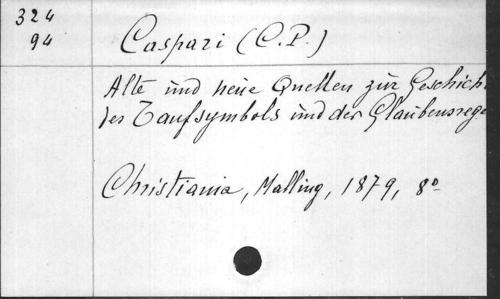 324
94
Caspari (C.P.)
Alte und neue Quellen zur Geschich
des Taufsymbols und der Glaubensrege
Christiania, Malling, 1879, 8°